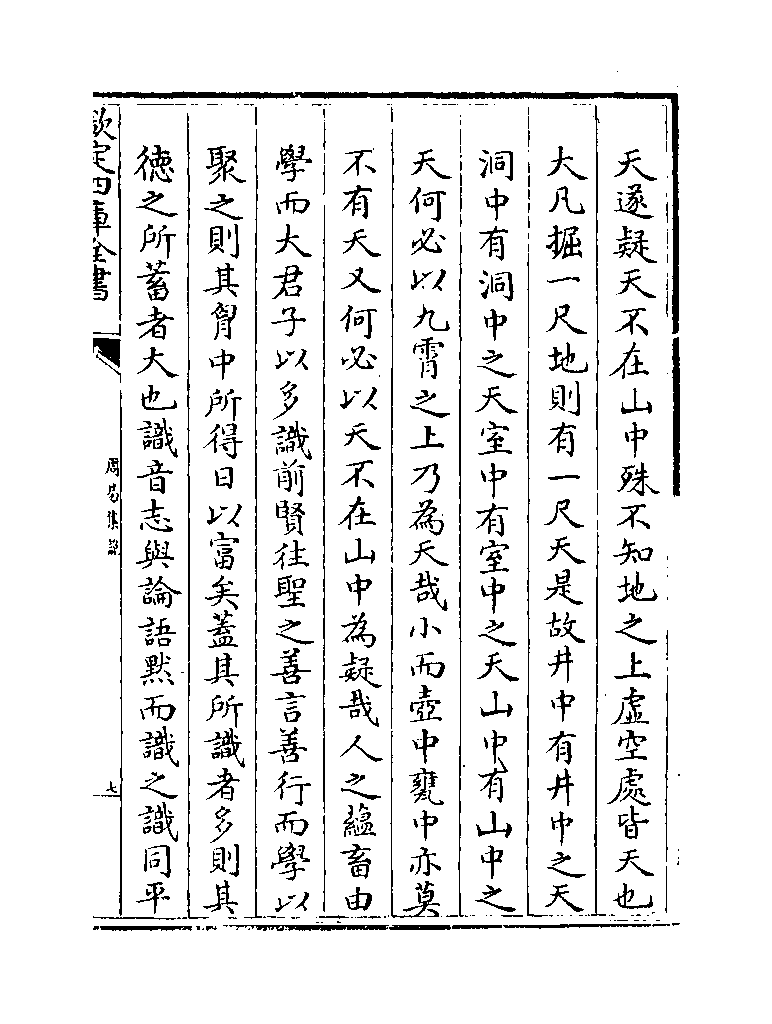 天遂疑天不在山中殊不知地之上虛空處皆天也
大凡掘一尺地則有一尺天是故井中有井中之天
洞中有洞中之天室中有室中之天山中有山中之
天何必以九霄之上乃為天哉小而壺中甕中亦莫
不有天又何必以天不在山中為疑哉人之蘊畜由
學而大君子以多識前賢往聖之善言善行而學以
聚之則其胷中所得日以富矣蓋其所識者多則其
徳之所蓄者大也識音志與論語黙而識之識同平
欽定四庫全書
周易集說
七